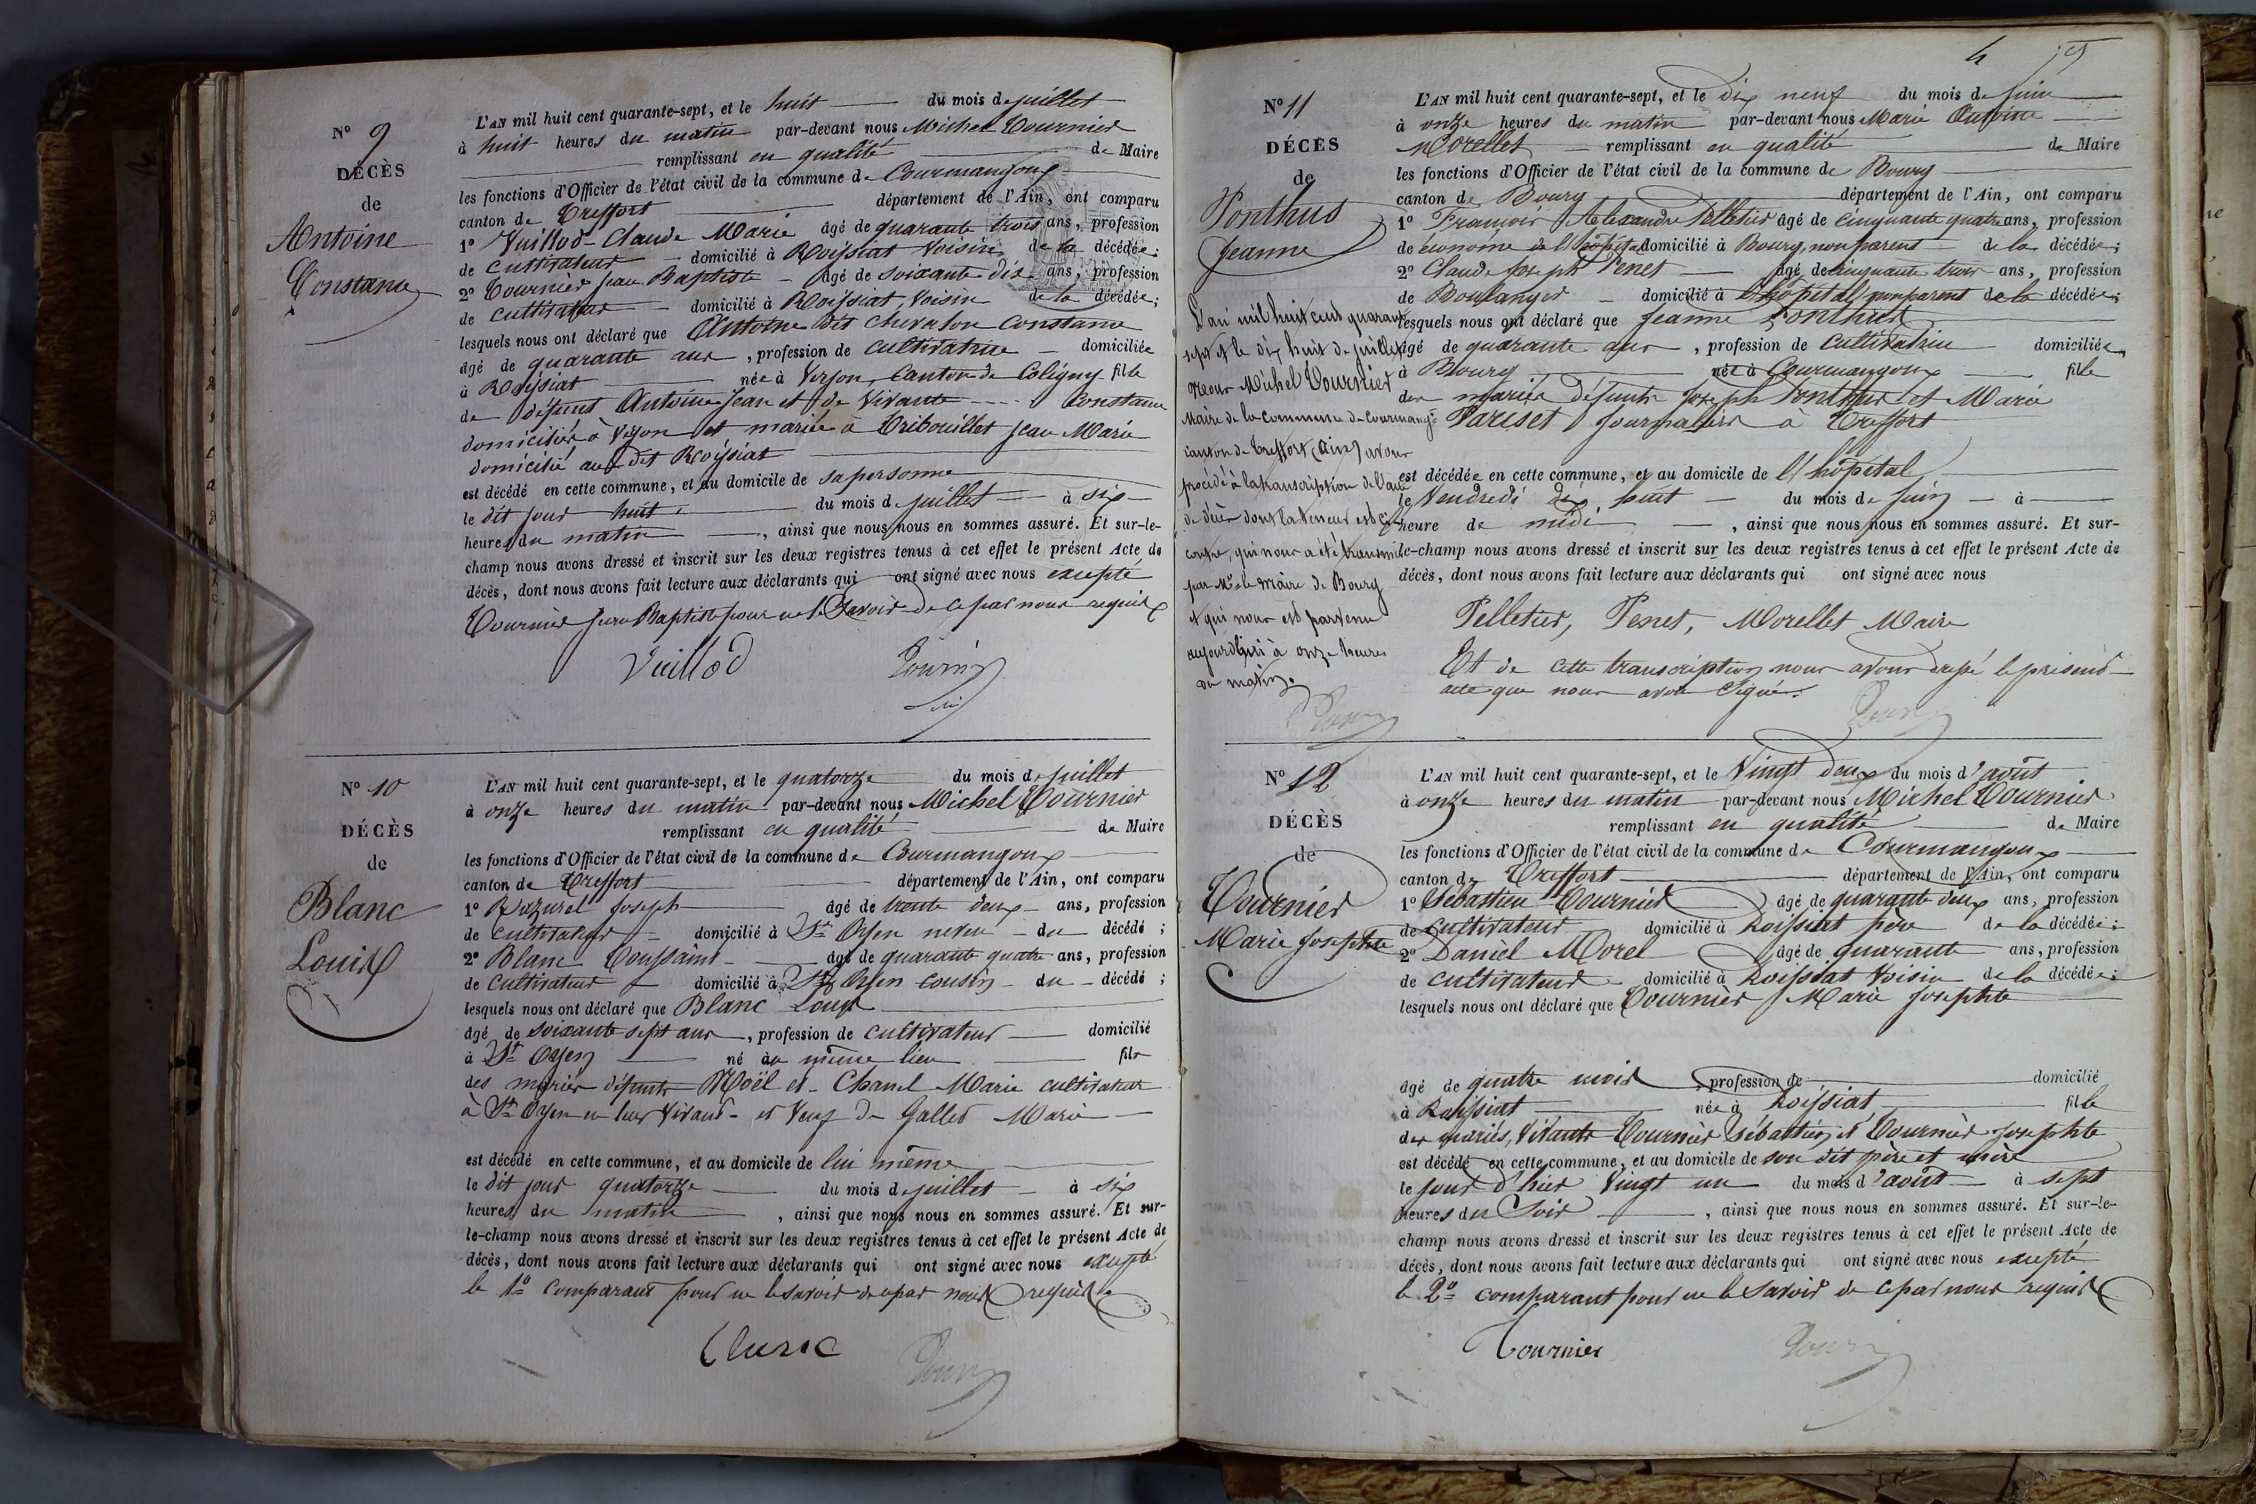 N° 9
DÉCÈS
de
Antoine
Constance
L'AN mil huit cent quarante-sept, et le huit du mois de juillet
à huit heures du matin par-devant nous Michel Tournier
remplissant en qualité de Maire
les fonctions d'Officier de l'état civil de la commune de Courmangoux
canton de Treffort département de l'Ain, ont comparu
1° Vuillod Claude Marie âgé de quarante trois ans, profession
de cultivateur domicilié à Roissiat Voisin de la décédée;
2° Tournier Jean Baptiste âgé de soixante dix ans, profession
de cultivateur domicilié à Roissiat, Voisin de la décédée;
lesquels nous ont déclaré que Antoine dit Chevalon Constance
âgé de quarante ans, profession de cultivatrice domiciliée
à Roissiat née à Verjon, Canton de Coligny fille
de défunt Antoine Jean et de Vivante ---- Constance
domiciliés à Verjon et mariée à Tribouillet Jean Marie
domicilié au dit Roissiat
est décédé en cette commune, et au domicile de sa personne
le dit jour huit du mois de juillet à six
heures du matin, ainsi que nous nous en sommes assuré. Et sur-le-
champ nous avons dressé et inscrit sur les deux registres tenus à cet effet le présent Acte de
décès, dont nous avons fait lecture aux déclarants qui ont signé avec nous excepté
Tournier Jean Baptiste pour ne le Savoir de ce par nous requis
Vuillod
N° 10
DÉCÈS
de
Blanc
Louis
L'AN mil huit cent quarante-sept, et le quatorze du mois de juillet
à onze heures du matin par-devant nous Michel Tournier
remplissant en qualité de Maire
les fonctions d'Officier de l'état civil de la commune de Courmangoux
canton de Treffort département de l'Ain, ont comparu
1° Bazurel Joseph âgé de trente deux ans, profession
de cultivateur domicilié à St Oyen neveu du décédé;
2° Blanc Toussaint âgé de quarante quatre ans, profession
de cultivateur domicilié à St Oyen cousin du décédé;
lesquels nous ont déclaré que Blanc Louis
âgé de soixante sept ans, profession de cultivateur domicilié
à St Oyen né au même lieu fils
des mariés défunts Noël et Chanel Marie cultivateur
à St Oyen en leur vivant et Veuf de Gallet Marie
est décédé en cette commune, et au domicile de lui même
le dit jour quatorze du mois de juillet à six
heures du matin, ainsi que nous nous en sommes assuré. Et sur-
le-champ nous avons dressé et inscrit sur les deux registres tenus à cet effet le présent Acte de
décès, dont nous avons fait lecture aux déclarants qui ont signé avec nous excepté
le 1° comparant pour ne le savoir de ce par nous requis
N° 11
DÉCÈS
de
Ponthus
Jeanne
L'an mil huit cent quarante
sept et le dix huit de juillet
Nous Michel Tournier
Maire de la commune de Courmangx
canton de Treffort (Ain) avons
procédé à la transcription de l'acte
de décès dont la teneur est ci-
contre, qui nous a été transmis
par Mr le Maire de Bourg
et qui nous est parvenu
aujourd'hui à onze heures
du matin.
L'AN mil huit cent quarante-sept, et le dix neuf du mois de juin
à onze heures du matin par-devant nous Marie Antoine
Morellet remplissant en qualité de Maire
les fonctions d'Officier de l'état civil de la commune de Bourg
canton de Bourg département de l'Ain, ont comparu
1° François Alexandre Pelletier âgé de cinquante quatre ans, profession
de économe de l'hôpital domicilié à Bourg, non parent de la décédée;
2° Claude Joseph Penet âgé de cinquante trois ans, profession
de Boulanger domicilié à l'hôpital, non parent de la décédée;
lesquels nous ont déclaré que Jeanne Ponthus
âgé de quarante ans, profession de cultivatrice domiciliée
à Bourg née à Courmangoux fille
des mariés défunts Joseph Ponthus et Marie
Pariset journaliers à Treffort
est décédée en cette commune, et au domicile de l'hôpital
le Vendredi dix huit du mois de juin à
heure de midi, ainsi que nous nous en sommes assuré. Et sur-
le-champ nous avons dressé et inscrit sur les deux registres tenus à cet effet le présent Acte de
décès, dont nous avons fait lecture aux déclarants qui ont signé avec nous
Pelletier, Penet, Morellet Maire
Et de cette transcription nous avons dressé le présent
acte que nous avons signé.
N° 12
DÉCÈS
de
Tournier
Marie Josephte
L'AN mil huit cent quarante-sept, et le Vingt deux du mois d'août
à onze heures du matin par-devant nous Michel Tournier
remplissant en qualité de Maire
les fonctions d'Officier de l'état civil de la commune de Courmangoux
canton de Treffort département de l'Ain, ont comparu
1° Sébastien Tournier âgé de quarante deux ans, profession
de cultivateur domicilié à Roissiat père de la décédée;
2° Daniel Morel âgé de quarante ans, profession
de cultivateur domicilié à Roissiat Voisin de la décédée;
lesquels nous ont déclaré que Tournier Marie Josephte
âgé de quatre mois, profession de domicilié
à Roissiat née à Roissiat fille
des mariés, Vivants Tournier Sébastien et Tournier Josephte
est décédé en cette commune, et au domicile de son dit père et mère
le jour d'hier Vingt un du mois d'août à sept
heures du Soir, ainsi que nous nous en sommes assuré. Et sur-le-
champ nous avons dressé et inscrit sur les deux registres tenus à cet effet le présent Acte de
décès, dont nous avons fait lecture aux déclarants qui ont signé avec nous excepté
le 2° comparant pour ne le Savoir de ce par nous requis
Tournier